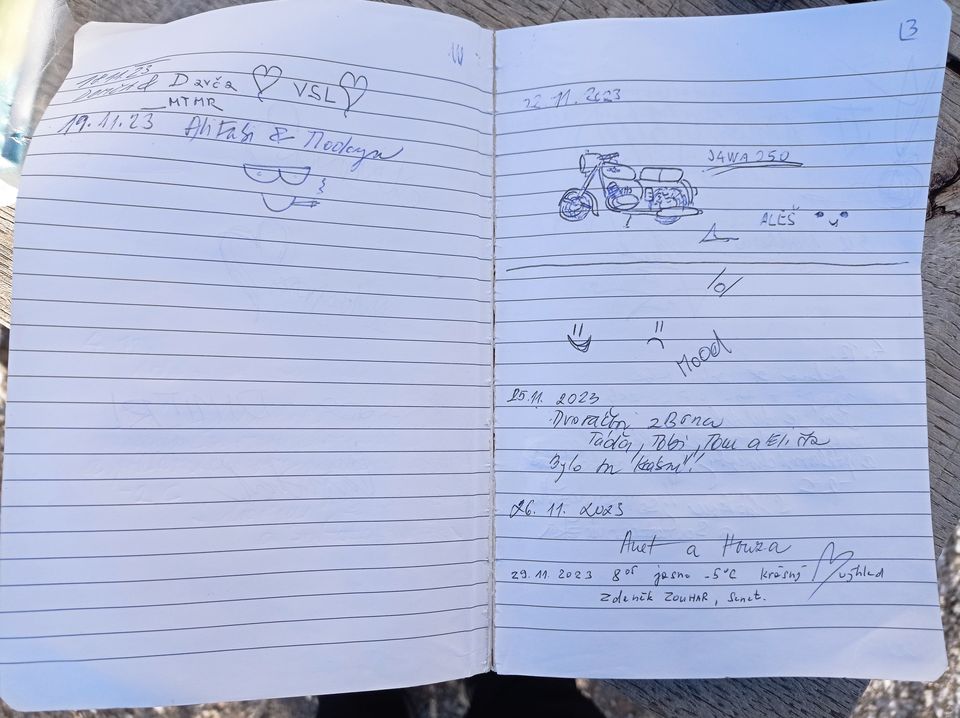 18.11.23
Davča VSL
MTMR
19.11.23 &
13
22.11.2023
JAWA 250
ALEŠ
Mood
25.11. 2023
Dvoráčci z Brna
Táďa, Tobi, Tom a Eliška
Bylo tu krásně!
26. 11. 2023
Anet a Honza
29.11.2023 8⁰⁵ jasno -5°C krásný výhled
Zdeněk ZOUHAR,